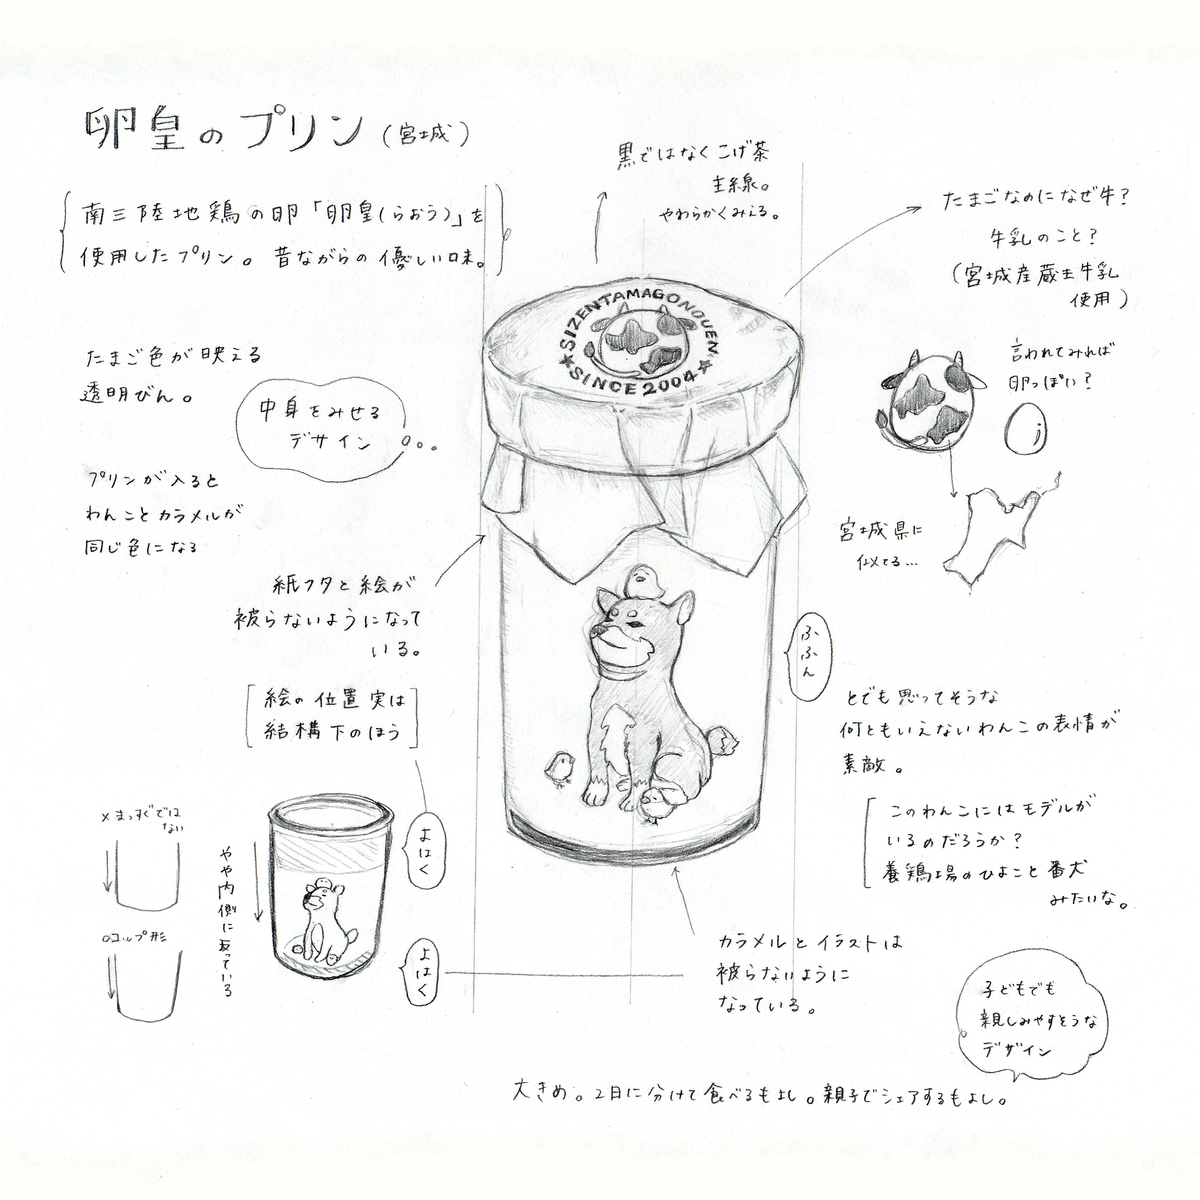 卵皇のプリン(宮城)
南三陸地鶏の卵「卵皇(らおう)」を
使用したプリン。昔ながらの優しい口味。
黒ではなくこげ茶
主線。
やわらかくみえる。
たまごなのになぜ牛?
牛乳のこと?
(宮城産蔵王牛乳
使用)
SIZENTAMAGONOUEN
★SINCE 2004★
たまご色が映える
透明びん。
中身をみせる
デザイン
言われてみれば
卵っぽい?
プリンが入ると
わんことカラメルが
同じ色になる
宮城県に
似てる…
紙フタと絵が
被らないようになって
いる。
ふふん
絵の位置実は
結構下のほう
とでも思ってそうな
何ともいえないわんこの表情が
素敵。
このわんこにはモデルが
いるのだろうか?
養鶏場のひよこと番犬
みたいな。
×まっすぐでは
ない
○コップ形
やや内側に反っている
よはく
よはく
カラメルとイラストは
被らないように
なっている。
子どもでも
親しみやすそうな
デザイン
大きめ。2日に分けて食べるもよし。親子でシェアするもよし。